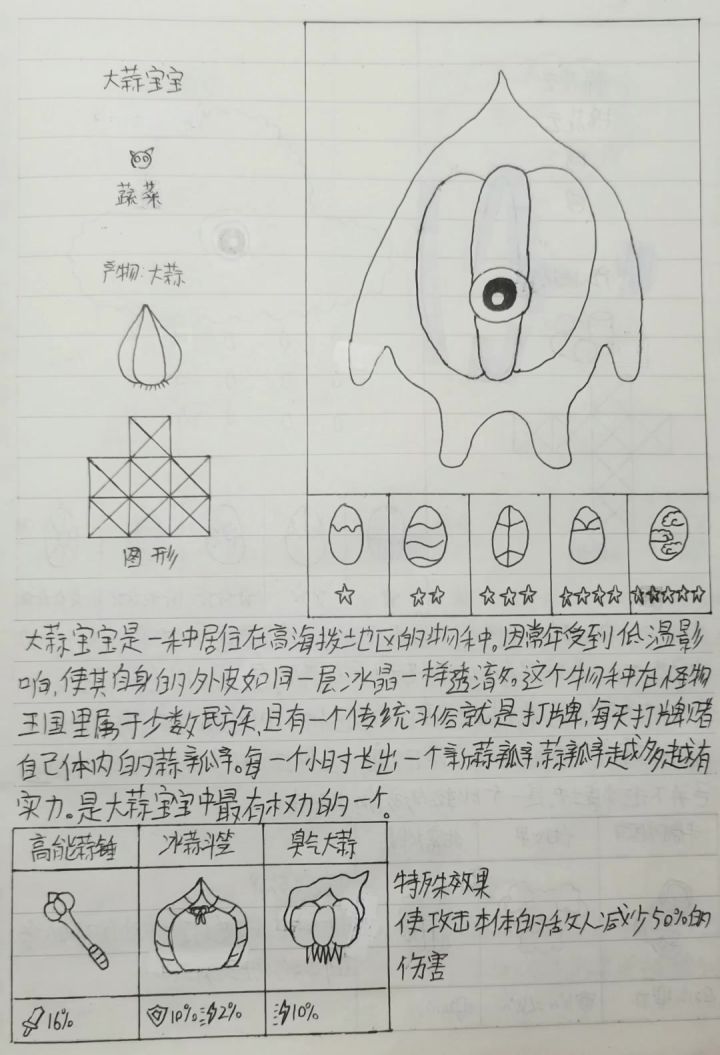 大蒜宝宝
蔬菜
产物:大蒜
图形
大蒜宝宝是一种居住在高海拔地区的物种。因常年受到低温影
响,使其自身的外皮如同一层冰晶一样透清。这个物种在怪物
王国里属于少数民族,且有一个传统习俗就是打牌,每天打牌赌
自己体内的蒜瓢。每一个小时长出一个新蒜瓢,蒜瓢越多越有
实力。是大蒜宝宝中最有权力的一个。
高能蒜锤 冰蒜斗笠 臭气大蒜
16% 10% 2% 10%
特殊效果
使攻击本体的敌人减少50%的
伤害